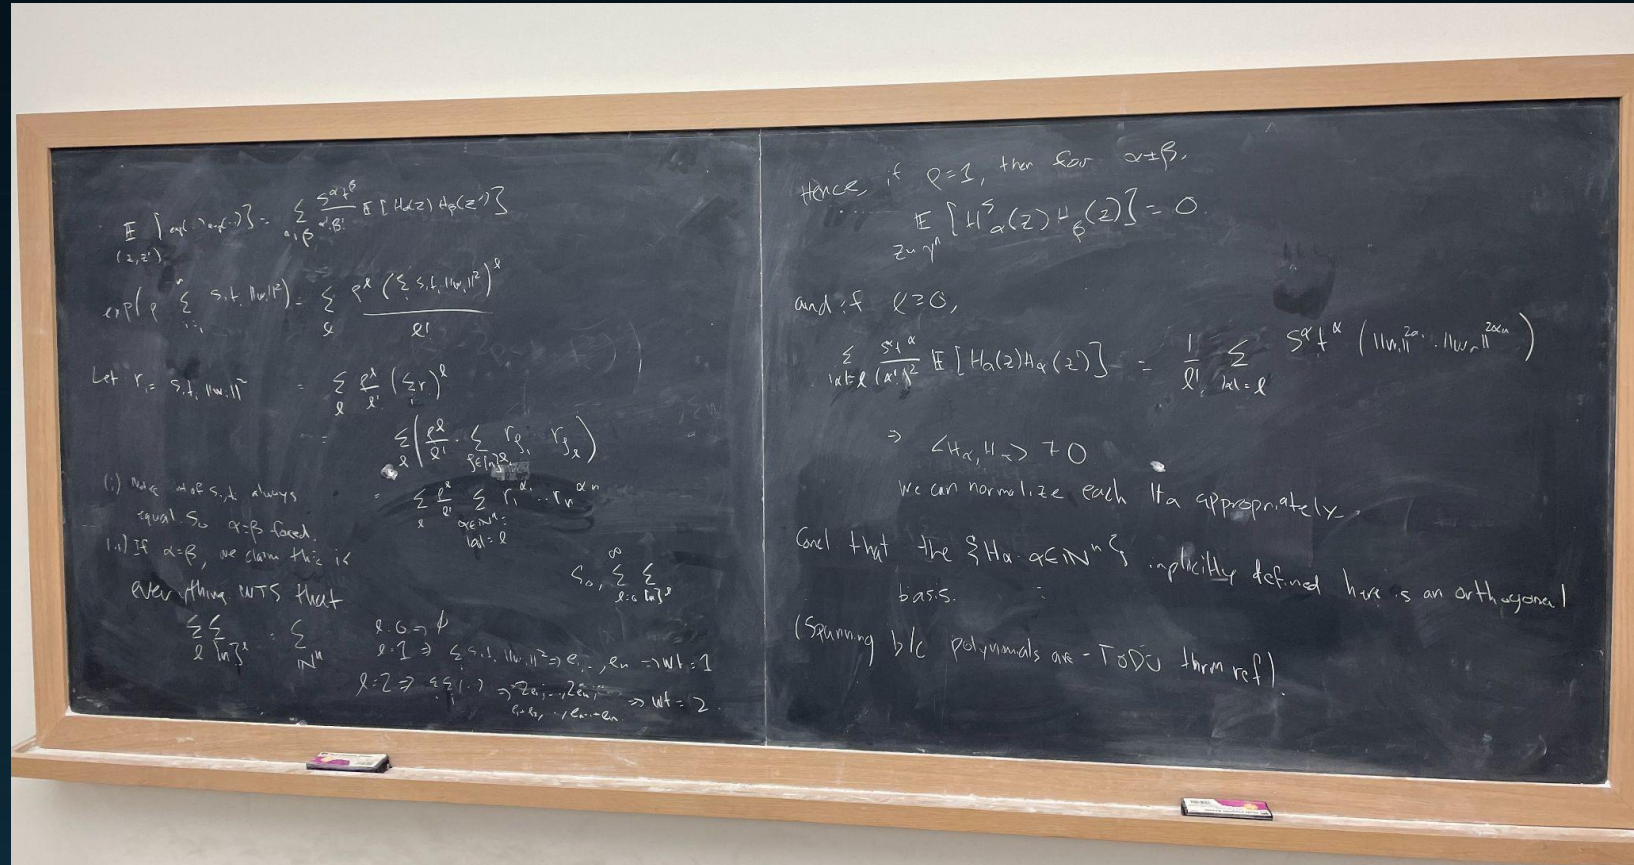 𝔼 [exp(..)exp(..)] = Σ_{α,β} s^α t^β / α!β! 𝔼[H_α(z) H_β(z')]
(z,z')
exp(ρ Σ_{i=1}^n s_i t_i ||w_i||²) = Σ_l ρ^l (Σ s_i t_i ||w_i||²)^l / l!
Let r_i = s_i t_i ||w_i||² = Σ_l ρ^l / l! (Σ_i r)^l
= Σ_l ( ρ^l / l! · Σ_{ξ∈[n]^l} r_{ξ_1} .. r_{ξ_l} )
= Σ_l ρ^l / l! Σ_{α∈ℕ^n: |α|=l} r_1^{α_1} .. r_n^{α_n}
(i) Note # of s,t always
equal. So α=β forced.
(ii) If α=β, we claim this is
everything WTS that
Σ_l Σ_{[n]^l} = Σ_{ℕ^n}
So, Σ_{l=0}^∞ Σ_{[n]^l}
l=0 → ϕ
l=1 ⇒ Σ s_i t_i ||w_i||² ⇒ e_1, .., e_n ⇒ wt = 1
l=2 ⇒ ΣΣ(..) ⇒ 2e_1, .., 2e_n, ⇒ wt = 2
e_1+e_2, .., e_{n-1}+e_n
Hence, if ρ=1, then for α≠β,
𝔼_{z∼γ^n} [H_α(z) H_β(z)] = 0.
and if l≥0,
Σ_{|α|=l} s^α t^α / (α!)² 𝔼[H_α(z) H_α(z')] = 1/l! Σ_{|α|=l} s^α t^α (||w_1||^{2α_1} .. ||w_n||^{2α_n})
⇒ <H_α, H_α> ≠ 0
We can normalize each H_α appropriately.
Concl that the {H_α : α∈ℕ^n} implicitly defined here is an orthogonal
basis.
(Spanning b/c polynomials are - TODO thrm ref).